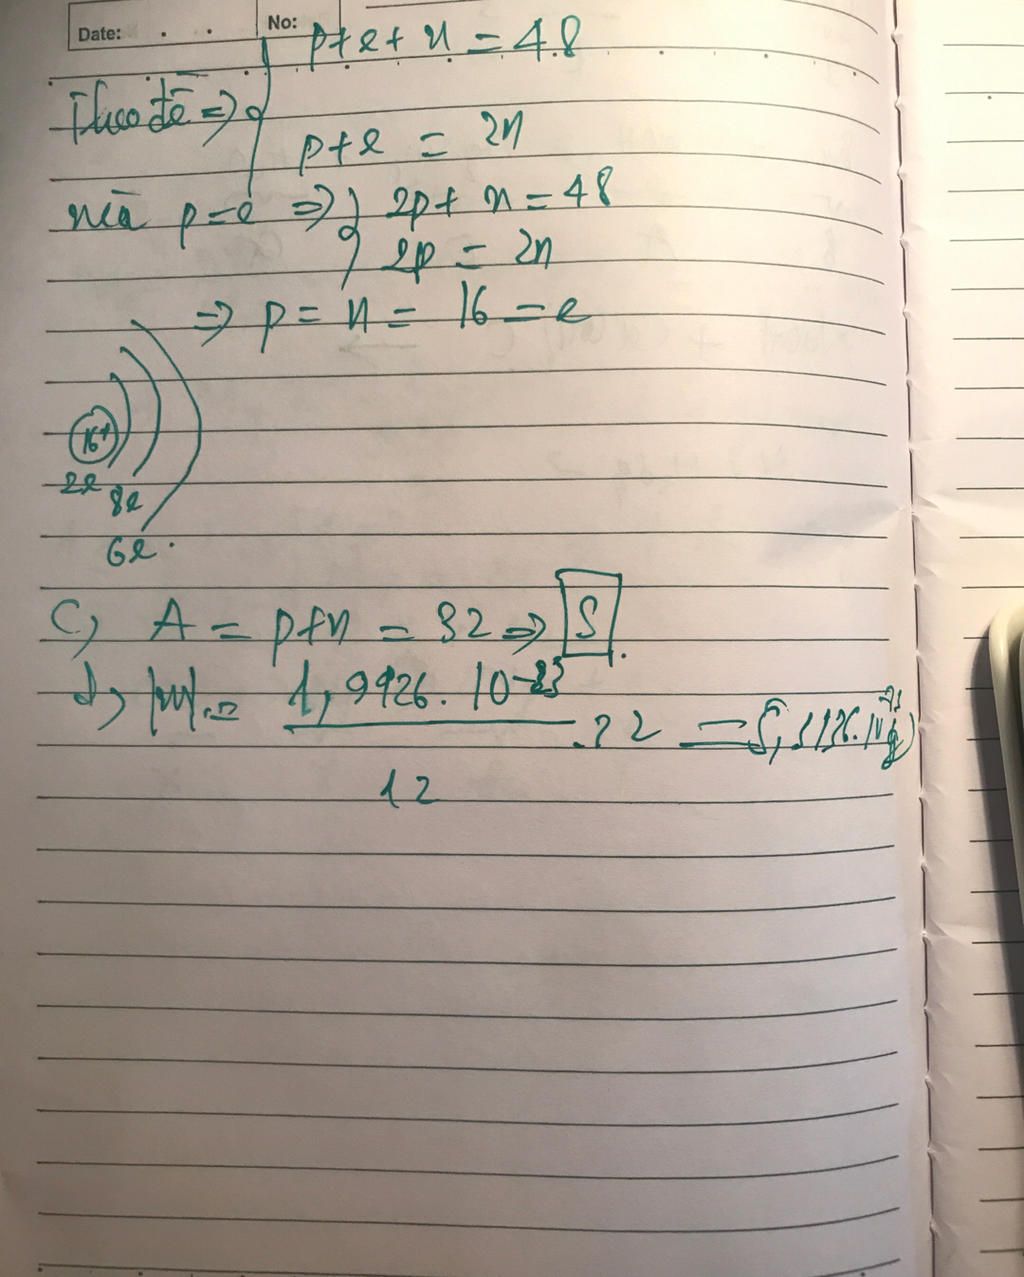 Date: . . No:
p+e+n = 48
Theo đề => {
p+e = 2n
mà p=e => } 2p + n = 48
2p = 2n
=> p = n = 16 = e
16+
2e
8e
6e.
C, A = p+n = 32 => S.
d, = 1,9926.10⁻²³
.32 = 5,3136.10⁻²³ (g)
12